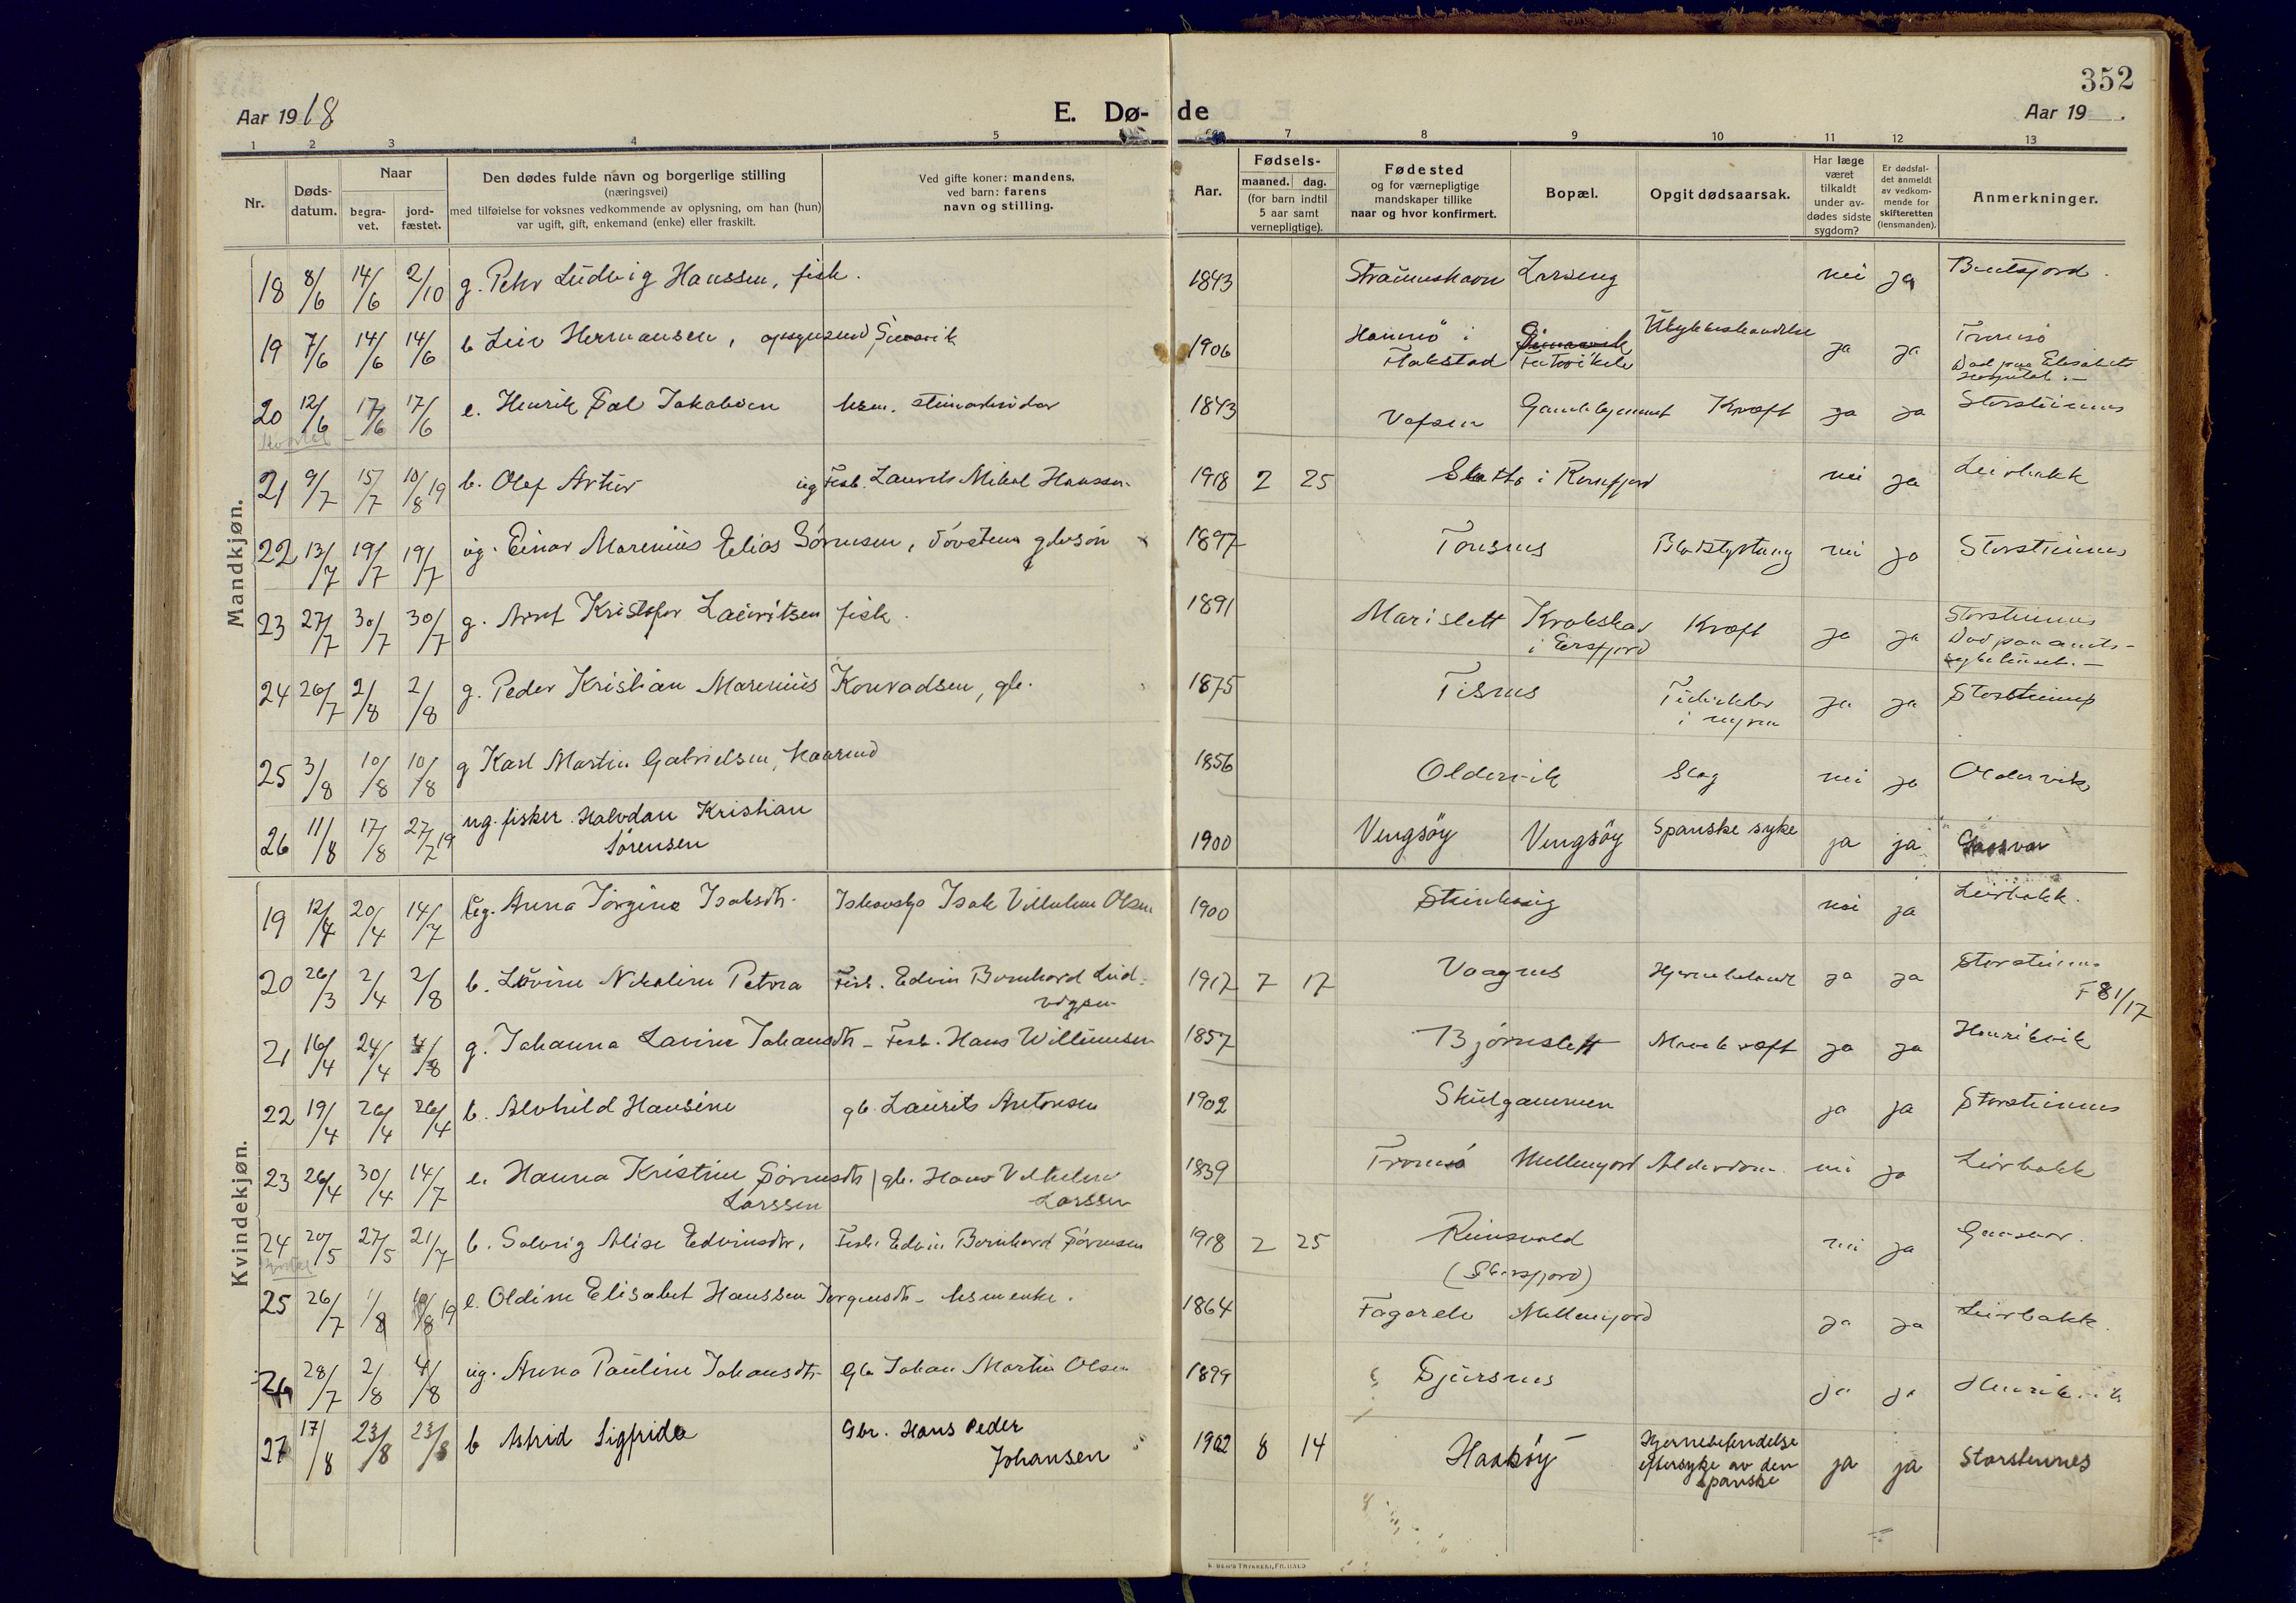 352
Aar 1918
E. Dø-
de
Aar 19 .
1 2 3 4 5 7 8 9 10 11 12 13
Nr.
Døds-
datum.
Naar
begra-
vet.
jord-
fæstet.
Den dødes fulde navn og borgerlige stilling
(næringsvei)
med tilføielse for voksnes vedkommende av oplysning, om han (hun)
var ugift, gift, enkemand (enke) eller fraskilt.
Ved gifte koner: mandens,
ved barn: farens
navn og stilling.
Aar.
Fødsels-
maaned. dag.
(for barn indtil
5 aar samt
vernepligtige).
Fødested
og for værnepligtige
mandskaper tillike
naar og hvor konfirmert.
Bopæl.
Opgit dødsaarsak.
Har læge
været
tilkaldt
under av-
dødes sidste
sygdom?
Er dødsfal-
det anmeldt
av vedkom-
mende for
skifteretten
(lensmanden).
Anmerkninger.
Mandkjøn.
18 8/6 14/6 2/10 g. Petr Ludvig Hanssen, fisk. 1843 Straumshavn Larseng nei ja Bentsjord.
19 7/6 14/6 14/6 b Leiv Hermansen, 1906 Hamnö i ja ja Tromsö
Flakstad Död paa Elisabets
hospital.—
20 12/6 17/6 17/6 e. Henrik Pal Jakobsen hsm. steinarbeider 1843 Vefsen Gamlehjemmet Kræft ja ja Storsteinnes
21 9/7 15/7 10/8 19 b. Olaf Artur ug Fisk. Laurits Mikal Hanssen 1918 2 25 Sletta i nei ja Leirbakk
22 13/7 19/7 19/7 ug. Einar Marenius Elias Sörensen, gbrsön 1897 Tonsnes Blodstyrtning nei ja Storsteinnes
23 27/7 30/7 30/7 g. Arnt Kristofer Lauritsen fisk. 1891 Marislett Krokskar Kræft ja ja Storsteinnes
i Ersfjord Död paa amts-
sykehuset.—
24 26/7 2/8 2/8 g. Peder Kristian Marenius Konradsen, gbr. 1875 Tisnes ja ja Storsteinnes
i
25 3/8 10/8 10/8 g Karl Martin Gabrielsen, kaarmd 1856 Oldervik Slag nei ja Oldervik
26 11/8 17/8 27/7 19 ug. fisker Halvdan Kristian
Sørensen 1900 Vengsöy Vengsöy Spanske syke ja ja Gaasvær
Kvindekjøn.
19 12/4 20/4 14/7 ug. Anna Jörgine Isaksdtr. Isak Vilhelm Olsen 1900 Steinkseig nei ja Leirbakk.
20 26/3 2/4 2/8 b. Lovine Nikoline Petra Fisk. Edvin Bernhard Lud-
vigsen 1917 7 17 Vaagnes Hjernebetændl ja ja Storsteinnes
F 81/17
21 16/4 24/4 4/8 g. Johanna Lavine Johansdtr - Fisk. Hans Willumsen 1857 Bjørnslett Mavekræft ja ja Henrikvik
22 19/4 26/4 26/4 b. Alvhild Hansine gb. Laurits Antonsen 1902 Skulgammen ja ja Storsteinnes
23 26/4 30/4 14/7 e. Hanna Kristine Sörensdtr gb. Hans Vilhelm
Larssen Larssen 1839 Tromsö Mellemjord Alderdom nei ja Leirbakk
24 20/5 27/5 21/7 b. Solveig Alise Edvinsdtr. Fisk. Edvin Bernhard Sörensen 1918 2 25 Reinsvold nei ja Gaasvær.
25 26/7 1/8 10/8 19 e. Oldine Elisabet Hanssen Jörgensdtr - hsm enke. 1864 Fagerelv Mellemjord ja ja Leirbakk.
26 28/7 2/8 4/8 ug. Anna Pauline Johansdtr Gb Johan Martin Olsen 1899 Sjursnes ja ja
27 17/8 23/8 23/8 b Astrid Sigfrida Gbr. Hans Peder
Johansen 1902 8 14 Haakøy Hjernebetendelse
eftersyke av den
spanske ja ja Storstennes